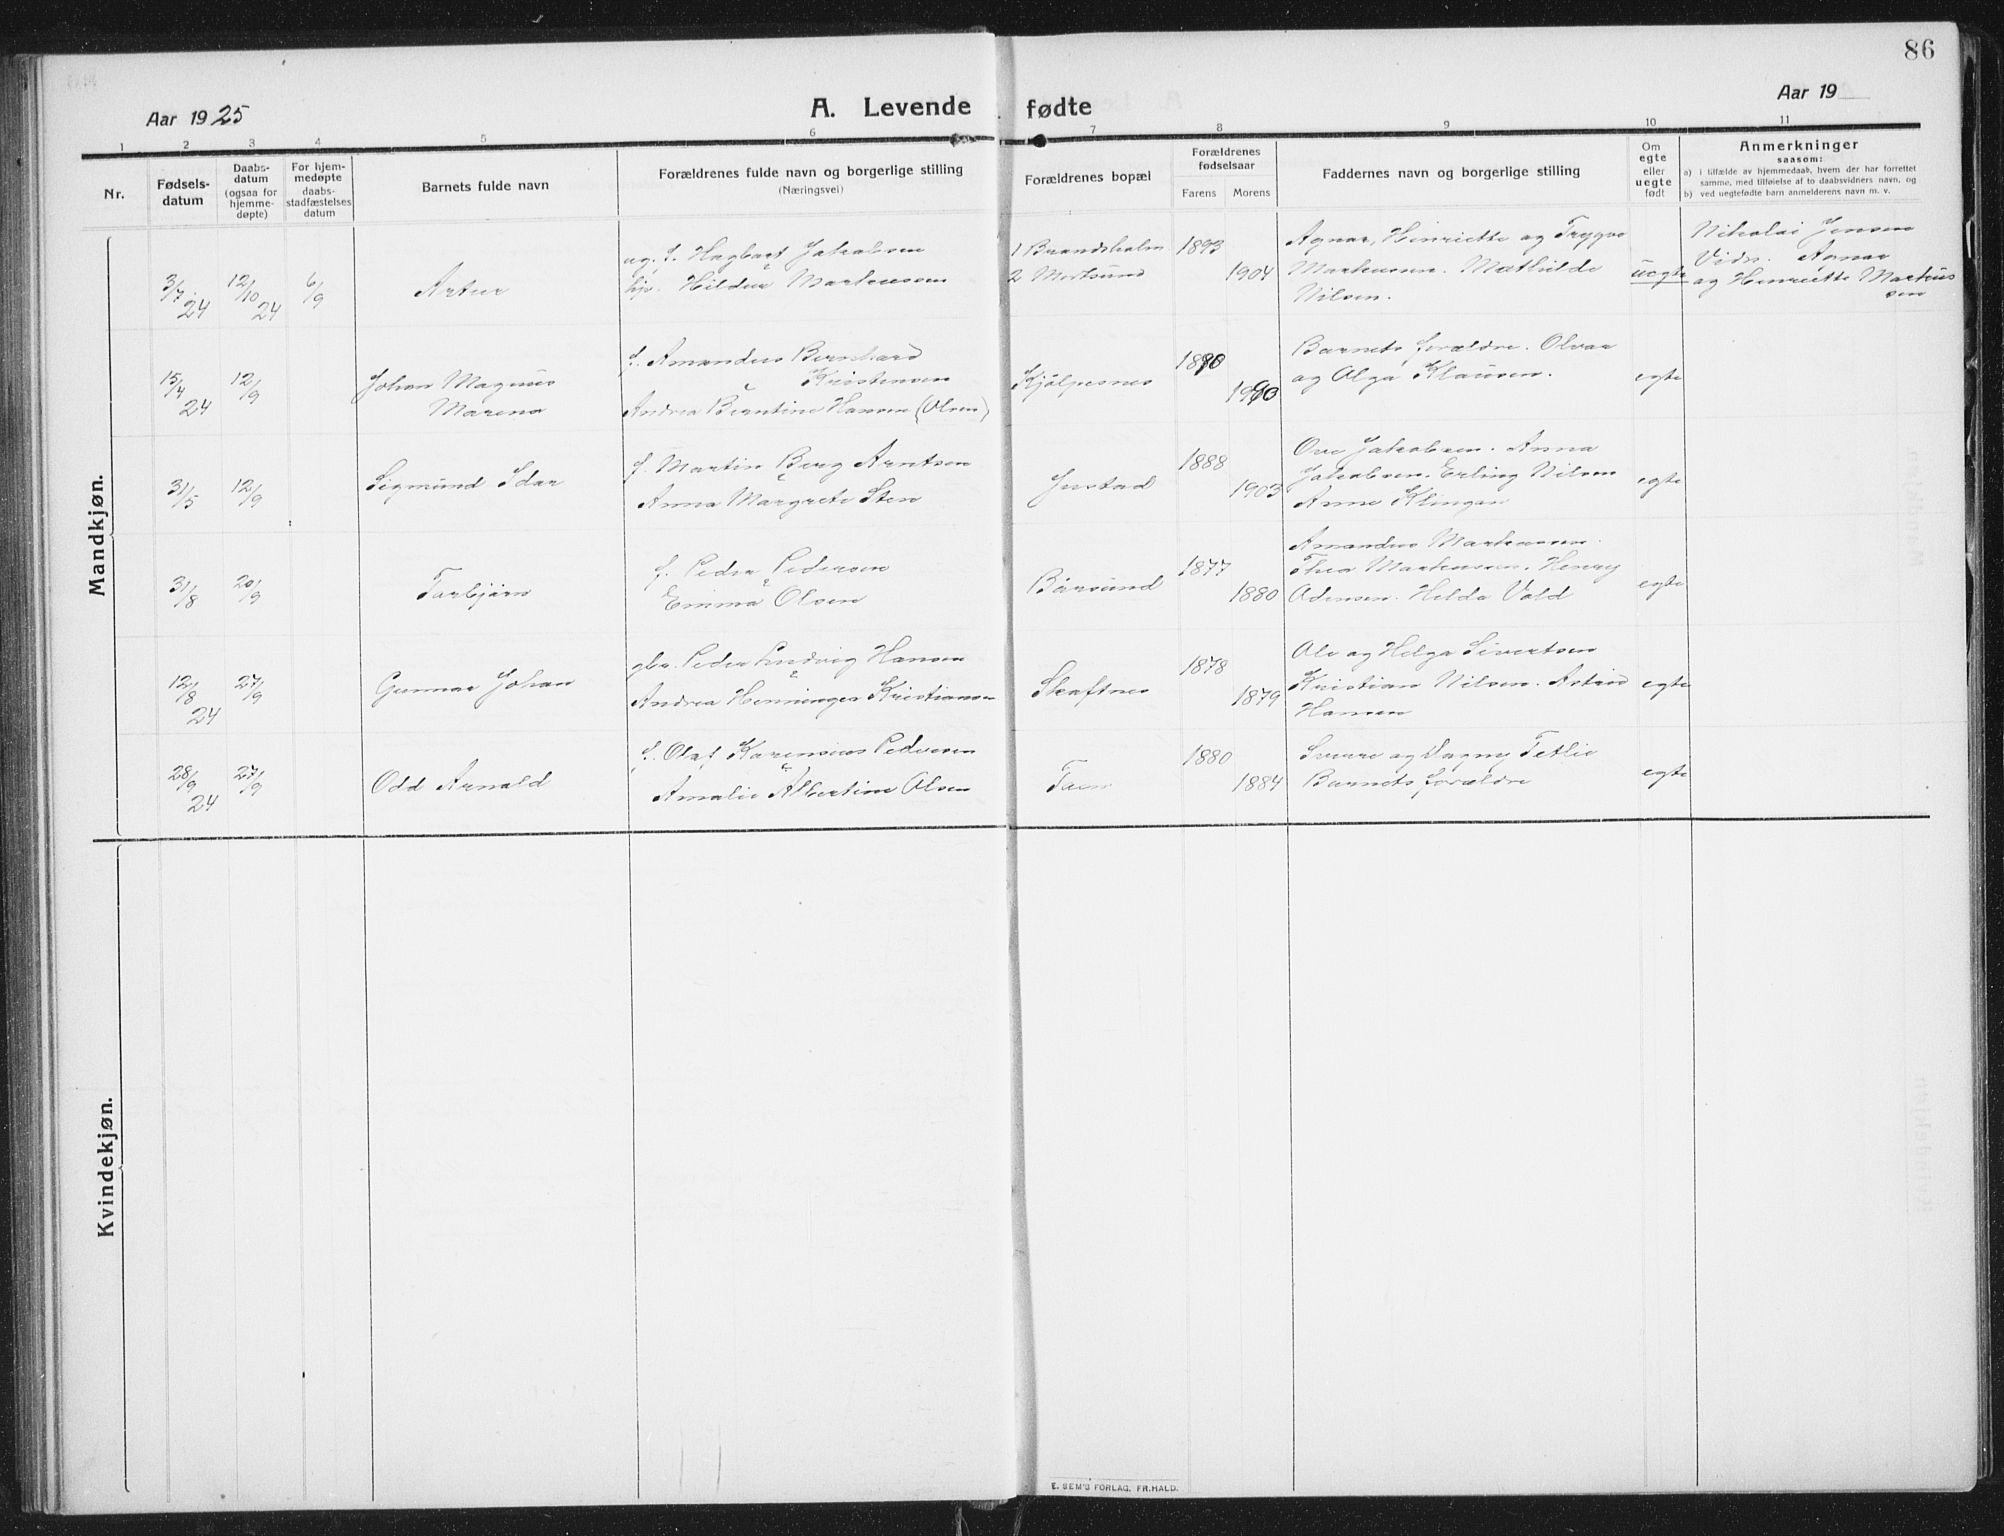 86
Aar 1925
A. Levende fødte
Aar 19
1 2 3 4 5 6 7 8 9 10 11
Nr.
Fødsels-
datum
Daabs-
datum
(ogsaa for
hjemme-
døpte)
For hjem-
medøpte
daabs-
stadfæstelses
datum
Barnets fulde navn
Forældrenes fulde navn og borgerlige stilling
(Næringsvei)
Forældrenes bopæl
Forældrenes
fødselsaar
Farens Morens
Faddernes navn og borgerlige stilling
Om
egte
eller
uegte
født
Anmerkninger
saasom:
a) i tilfælde av hjemmedaab, hvem der har forrettet
samme, med tilføielse af to daabsvidners navn, og
b) ved uegtefødte barn anmelderens navn m. v.
Mandkjøn.
3/7 24 12/10 24 6/9 Artur
ug. f. Hagbart Jakobsen
hp. Hildur Markussen
1 Brandsholm
2 Mortsund
1893
1904
Agnar, Henriette og Trygve
Markussen. Mathilde
Nilsen.
uegte
Nikolai Jensen
Vidn. Agnar
og Henriette Markus
sen
15/4 24 12/9 Johan Magnus
Marena
f. Amandus Bernhard
Kristensen
Andrea Berntine Hansen (Olsen)
Kjølpesnes
Barnets forældre. Olvar
og Olga Klausen.
egte
31/5 12/9 Sigmund Idar
f. Martin Berg Arntsen
Anna Margrete Sten
Justad
1888
1903
Ove Jakobsen. Anna
Jakobsen. Erling Nilsen
Anne Klingan
egte
31/8 20/9 Torbjørn
f. Peder Pedersen
Emma Olsen
Bårsund
1877
1880
Amandus Markussen.
Thea Markussen. Henry
Adensen. Hilda Vold
egte
12/8 24 27/9 Gunnar Johan
gbr. Peder Ludvig Hansen
Andrea Henninger Kristiansen
Skaftnes
1878
1879
Ole og Helga Sivertsen
Kristian Nilsen. Astrid
Hansen
egte
28/9 24 27/9 Odd Arnold
f. Olaf Karensius Pedersen
Amalie Albertine Olsen
Taen
1880
1884
Sverre og Dagny Tetlie
Barnets forældre
egte
Kvindekjøn.
E. SEM'S FORLAG. FR.HALD.